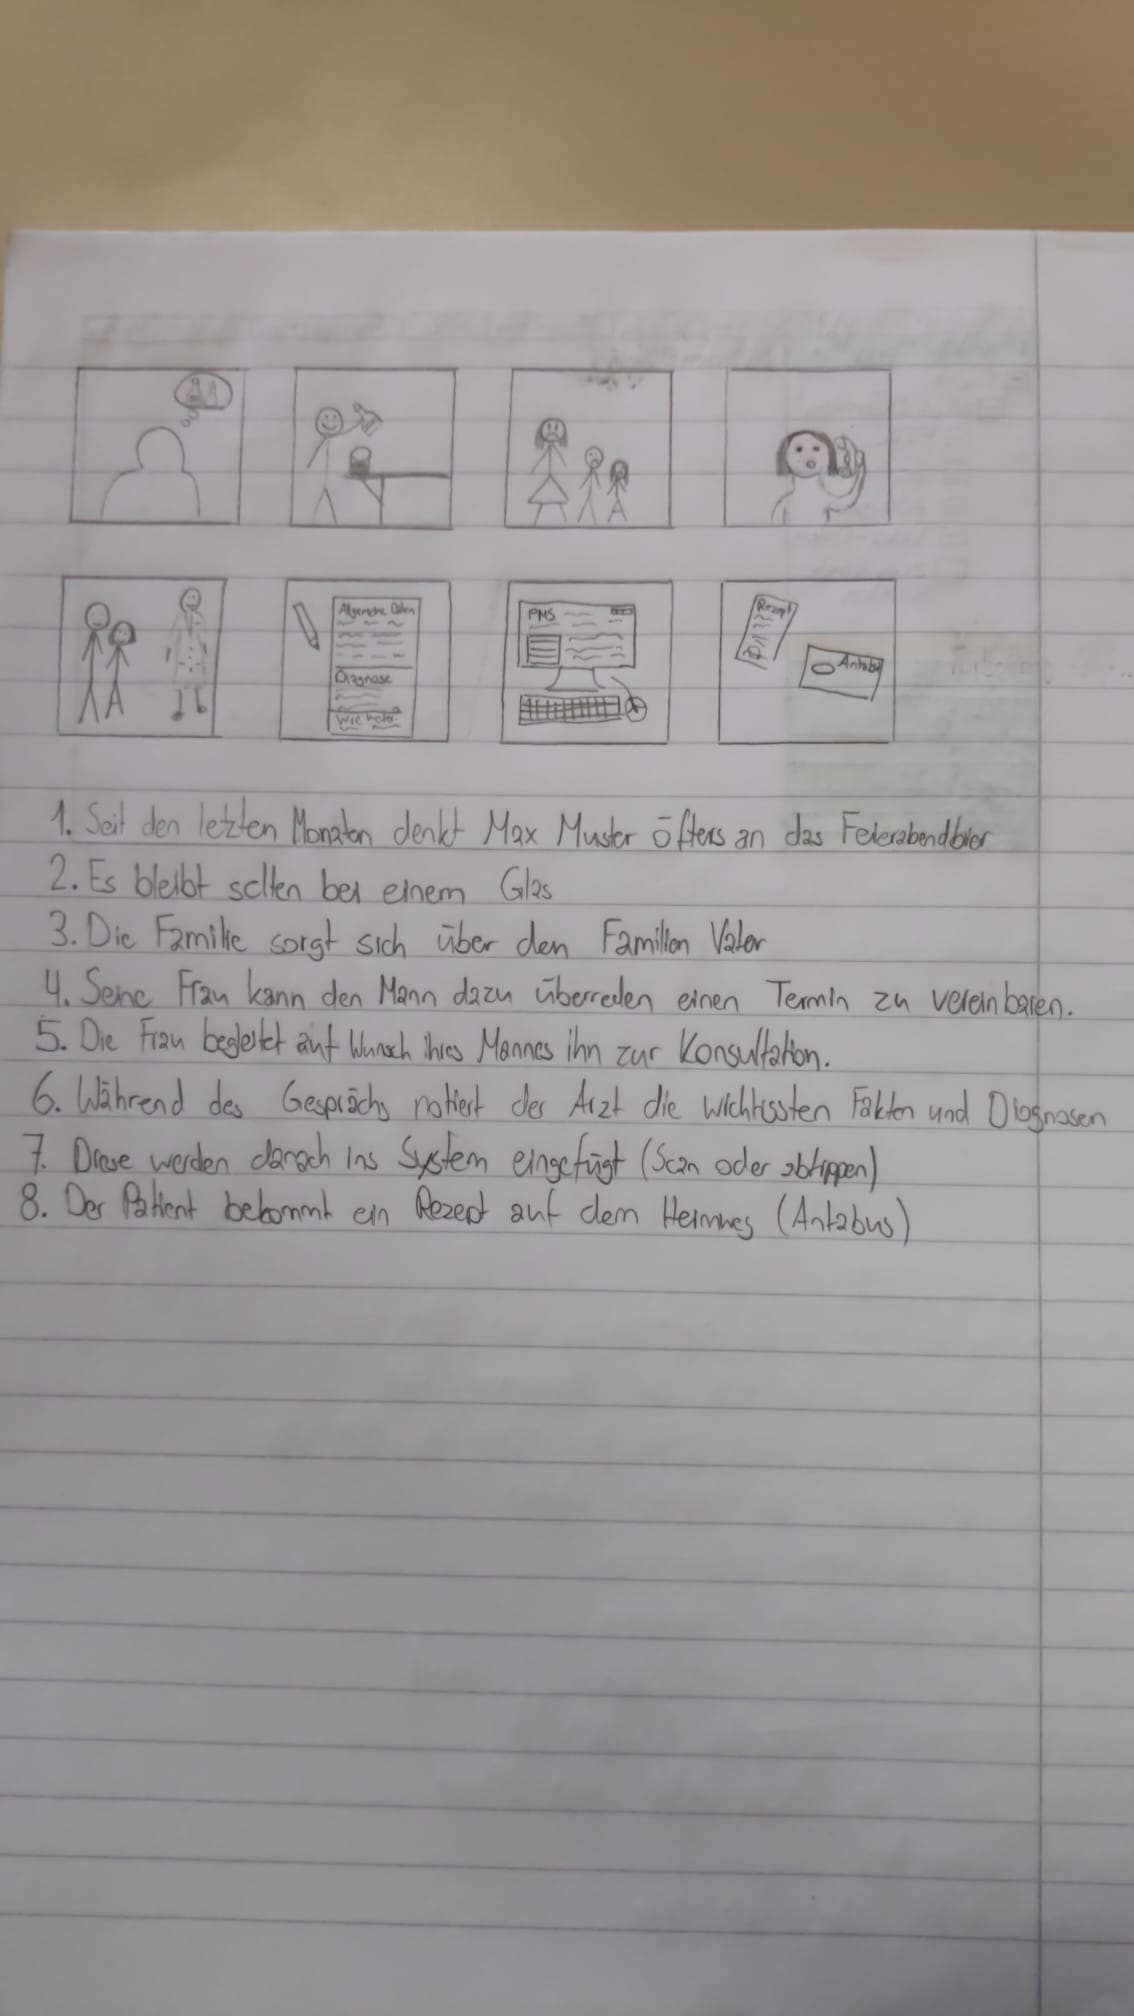 Allgemeine Daten
Diagnose
PMS
Rezept
Antabu
1. Seit den letzten Monaten denkt Max Muster öfters an das Feierabendbier
2. Es bleibt selten bei einem Glas
3. Die Familie sorgt sich über den Familien Vater
4. Seine Frau kann den Mann dazu überreden einen Termin zu vereinbaren.
5. Die Frau begleitet auf Wunsch ihres Mannes ihn zur Konsultation.
6. Während des Gesprächs notiert der Arzt die wichtissten Fakten und Diagnosen
7. Diese werden danach ins System eingefügt (Scan oder abtippen)
8. Der Patient bekommt ein Rezept auf dem Heimweg (Antabus)